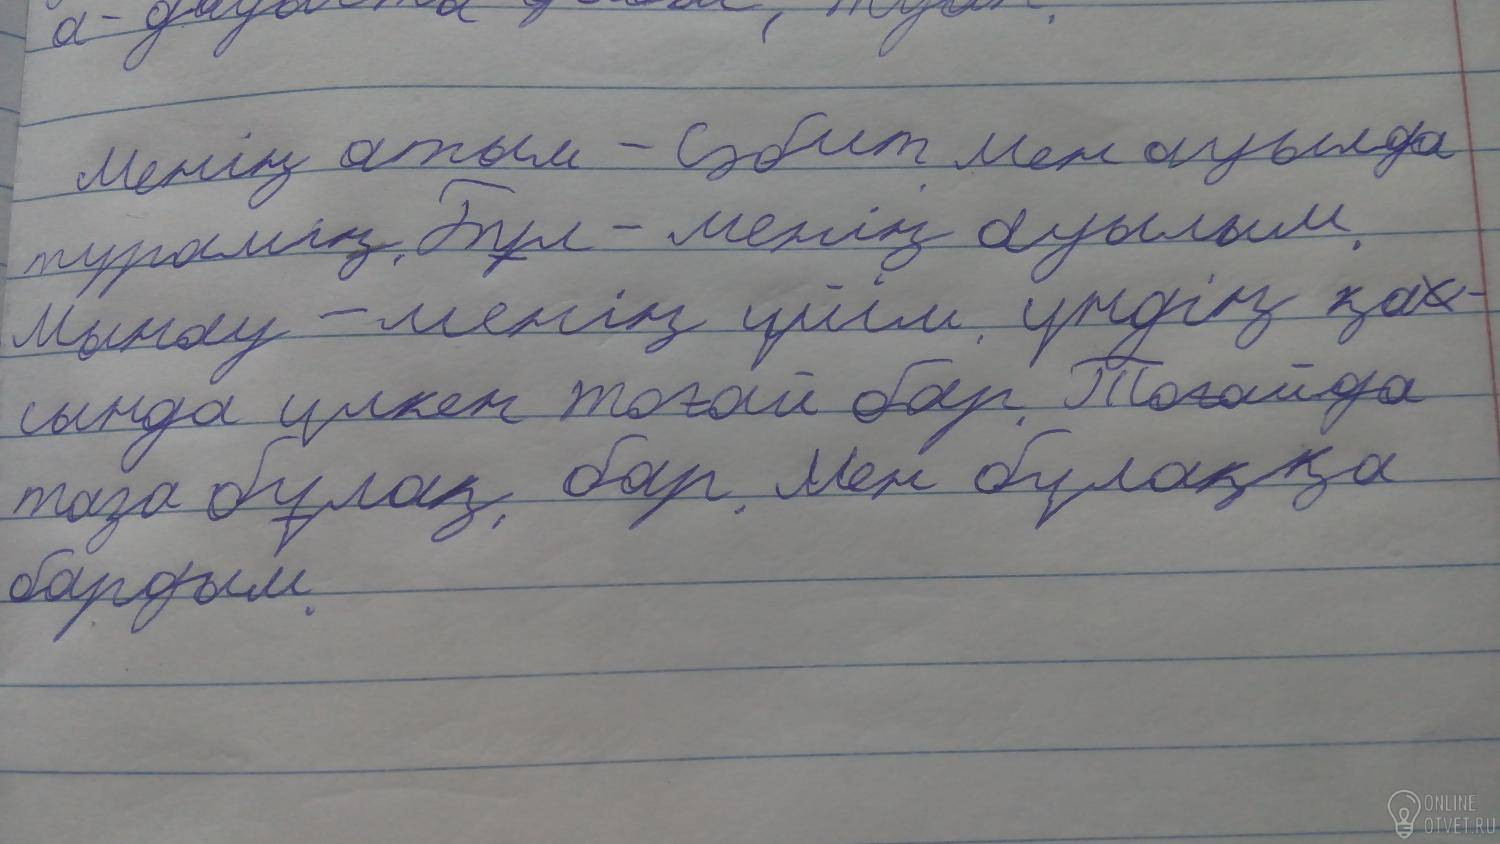 Менің атым – Сәбит Мен ауылда
турамің. Бұл – менің ауылым.
Мынау – менің үйім, үндің қах-
сында үлкен тоғай бар. Тоғайда
таза бұлақ, бар. Мен бұлаққа
бардым.
ONLINE
OTVET.RU